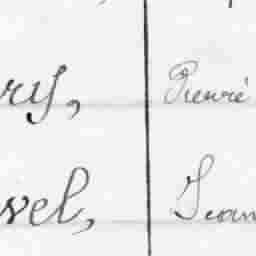 ry, Pierre
vel, Jean